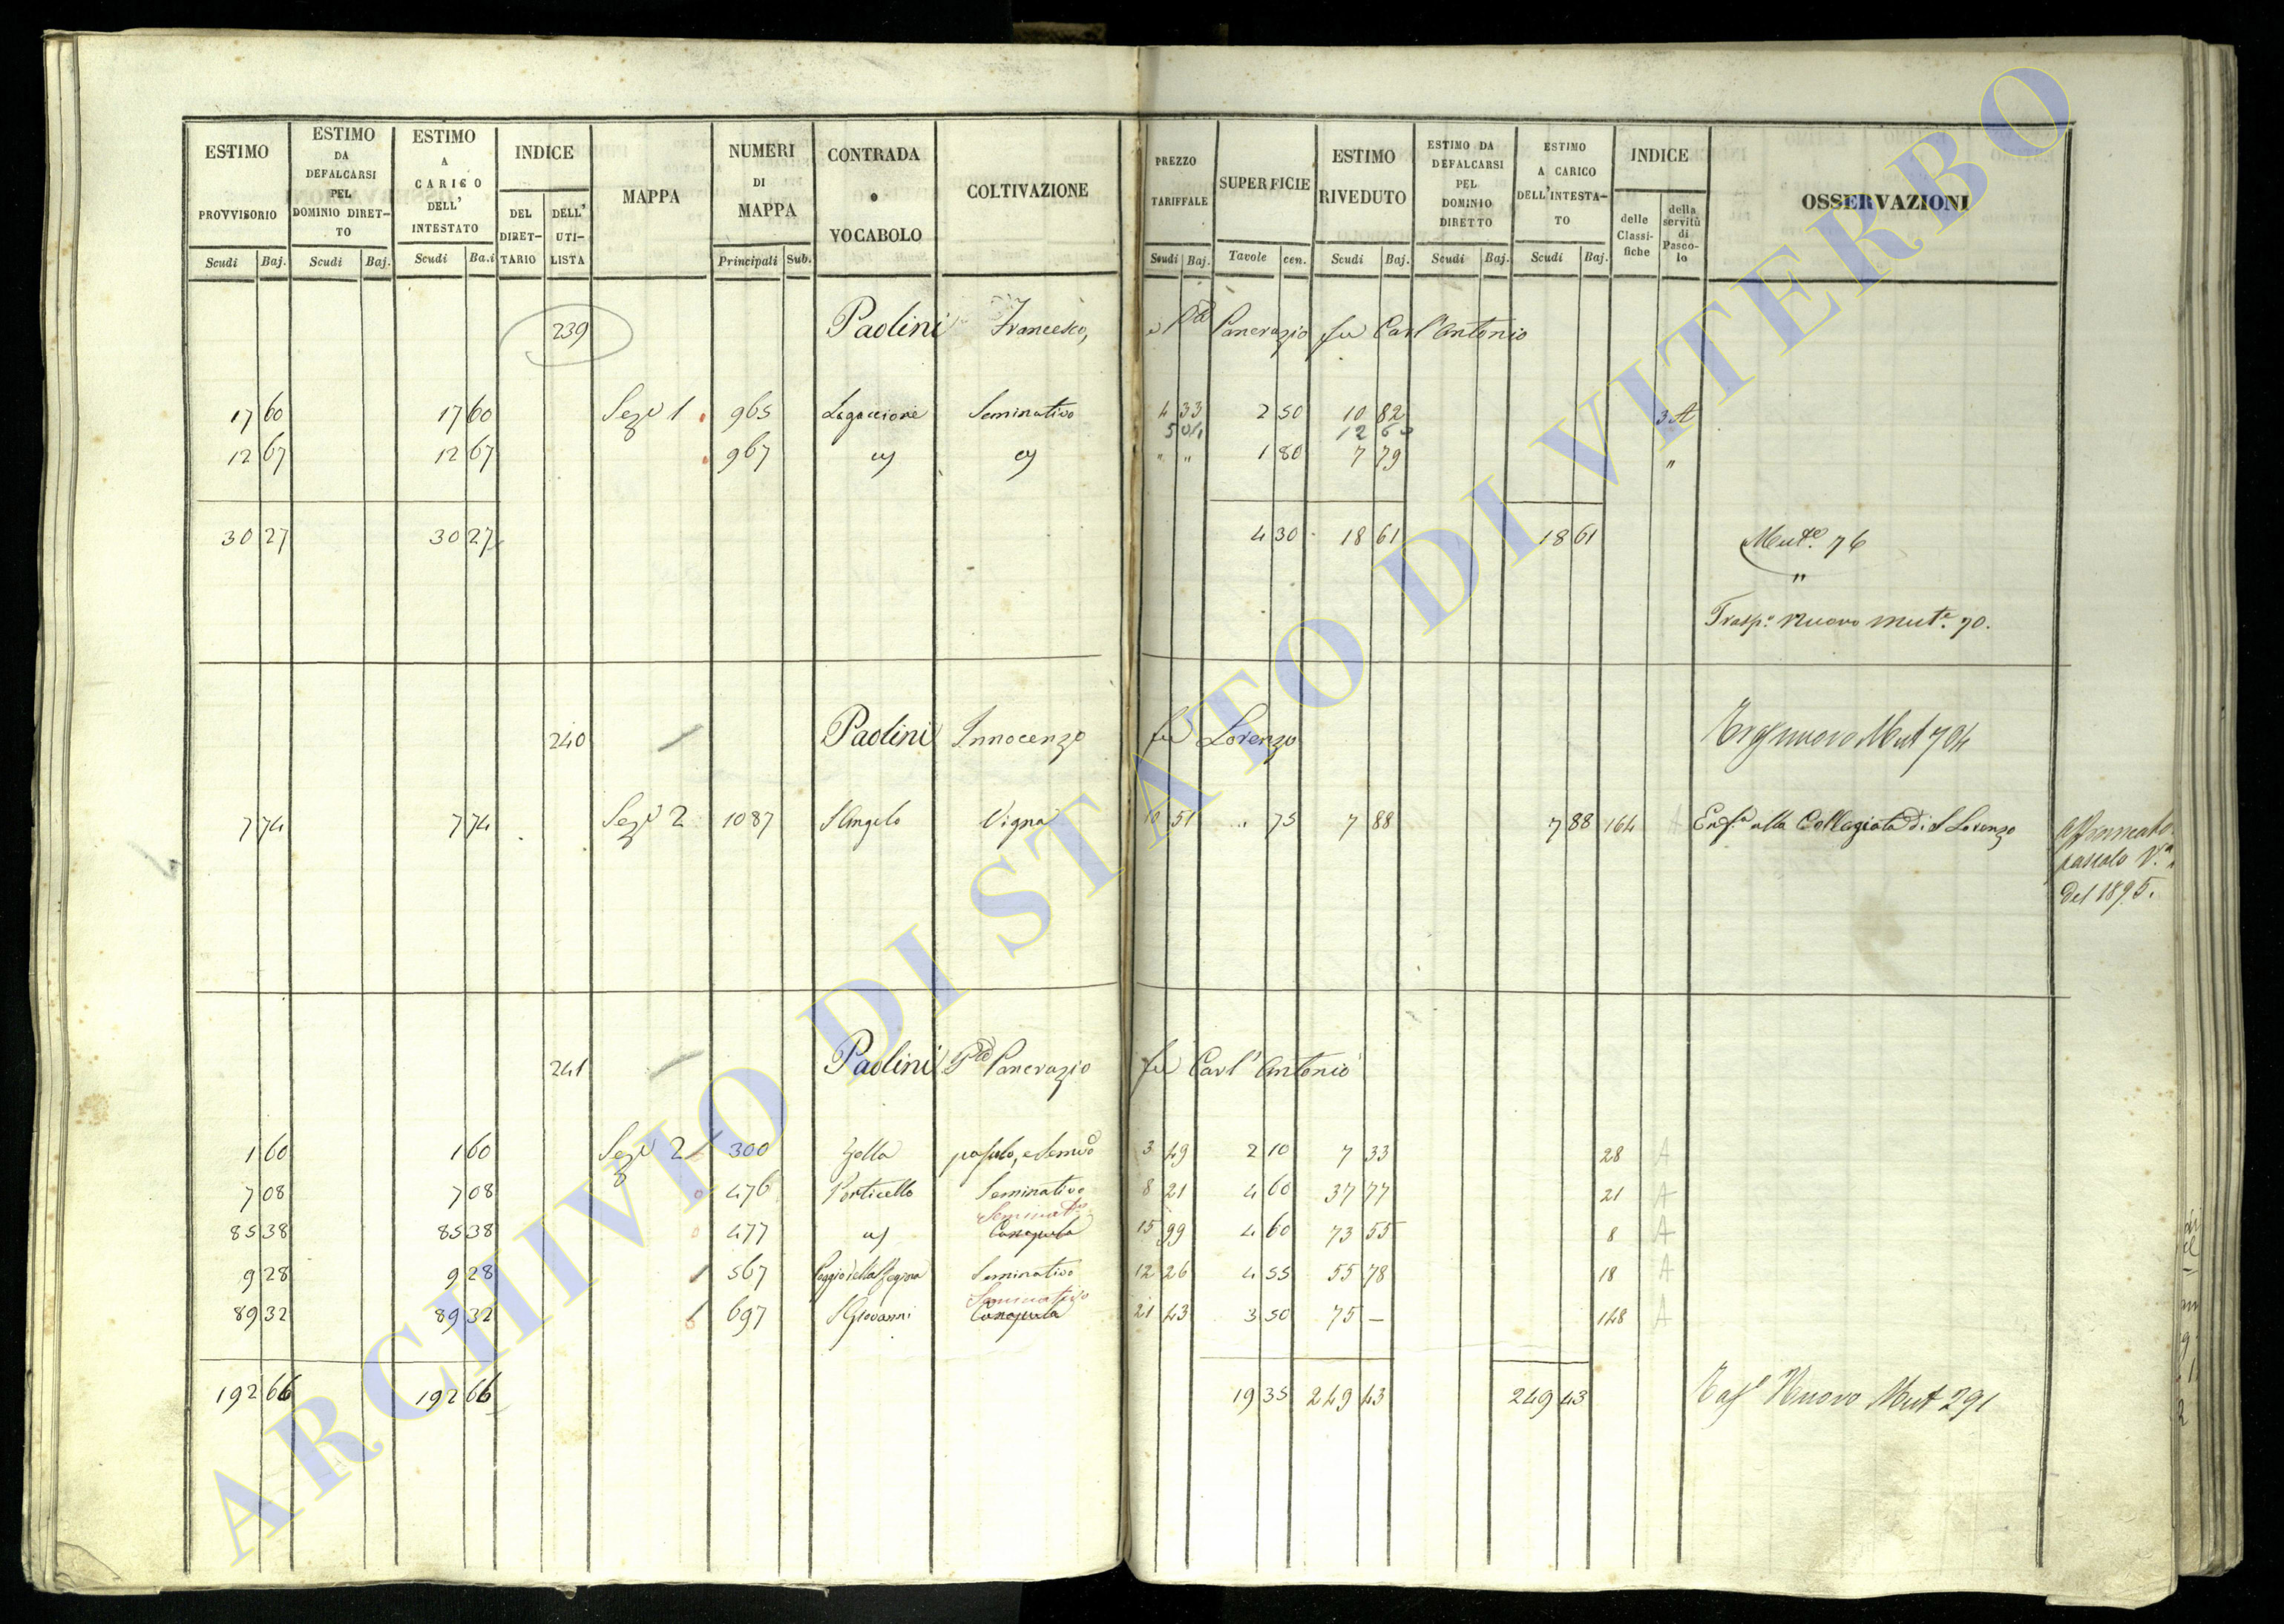 ESTIMO PROVVISORIO Scudi Baj. ESTIMO DA DEFALCARSI PEL DOMINIO DIRET-TO Scudi Baj. ESTIMO A CARICO DELL' INTESTATO Scudi Ba.i INDICE DEL DIRET-TARIO DELL' UTI-LISTA MAPPA NUMERI DI MAPPA Principali Sub. CONTRADA o VOCABOLO COLTIVAZIONE PREZZO TARIFFALE Scudi Baj. SUPERFICIE Tavole cen. ESTIMO RIVEDUTO Scudi Baj. ESTIMO DA DEFALCARSI PEL DOMINIO DIRETTO Scudi Baj. ESTIMO A CARICO DELL'INTESTA-TO Scudi Baj. INDICE delle Classi-fiche della servitù di Pasco-lo OSSERVAZIONI
239 Paolini Francesco, e Pancrazio fu Carl'Antonio
17 60 17 60 Sez. 1 965 Legaccione Seminativo 4 33 2 50 10 82 3 A
5 04 12 60
12 67 12 67 967 " " 1 80 7 79 "
30 27 30 27 4 30 18 61 18 61 Mut.e 76
"
Trasp.o Nuovo Mut.e 70.
240 Paolini Innocenzo fu Lorenzo nuovo Mut 704
7 74 7 74 Sez. 2 1087 S Angelo Vigna 10 51 " 75 7 88 7 88 164 A Enf.a alla Collegiata di S Lorenzo
Affrancato
pascolo V.a
del 1895.
241 Paolini Pancrazio fu Carl'Antonio
1 60 1 60 Sez. 2 300 Zella pascolo, e Semvo 3 49 2 10 7 33 28 A
7 08 7 08 476 Porticello Seminativo 8 21 4 60 37 77 21 A
Seminato
85 38 85 38 477 Canapula 15 99 4 60 73 55 8 A
9 28 9 28 567 Poggio della Regina Seminativo 12 26 4 55 55 78 18 A
Seminativo
89 32 89 32 697 S Giovanni Canapula 21 43 3 50 75 — 148 A
192 66 192 66 19 35 249 43 249 43 Nuovo Mut 291
ARCHIVIO DI STATO DI VITERBO